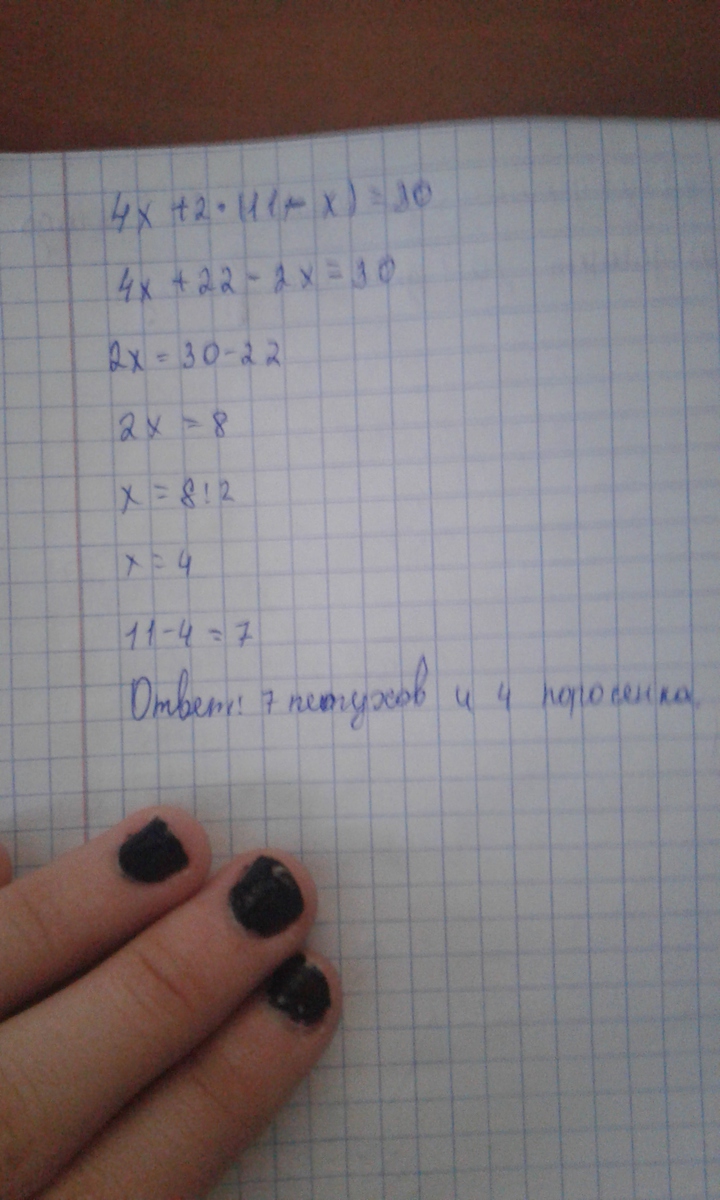 4x + 2 · (11 - x) = 30
4x + 22 - 2x = 30
2x = 30 - 22
2x = 8
x = 8 : 2
x = 4
11 - 4 = 7
Ответ: 7 петухов и 4 поросенка.